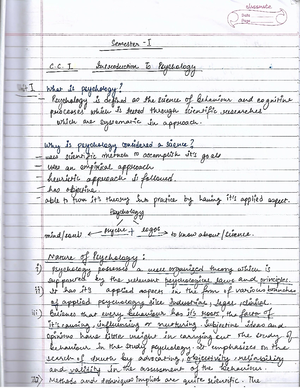 classmate
Date
Page
Semester - I
C.C. 1. Introduction to Psychology
Unit I. What is psychology?
- Psychology is defined as the science of behaviour and cognitive
processes which is tested through scientific researches
which are systematic in approach.
Why is psychology considered a science?
- uses scientific methods to accomplish it's goals
- uses an empirical approach
- heuristic approach is followed.
- has objective.
- able to turn it's theory into practice by having it's applied aspect.
Psychology
mind/soul ← psyche + logos → to know about/science.
Nature of Psychology:
i) Psychology possesses a well organized theory which is
supported by the relevant psychological laws and principles.
ii) It has it's applied aspects in the form of various branches
of applied psychology like industrial, legal, clinical.
iii) Believes that every behaviour has it's roots, the factor of
it's causing, influencing or nurturing. Subjective ideas and
opinions have little weight in carrying out the study of
behaviour in the study psychology as emphasizes in the
search of truth by advocating, objectivity, reliability
and validity in the assessment of the behaviour.
Methods and techniques implied are quite scientific. The